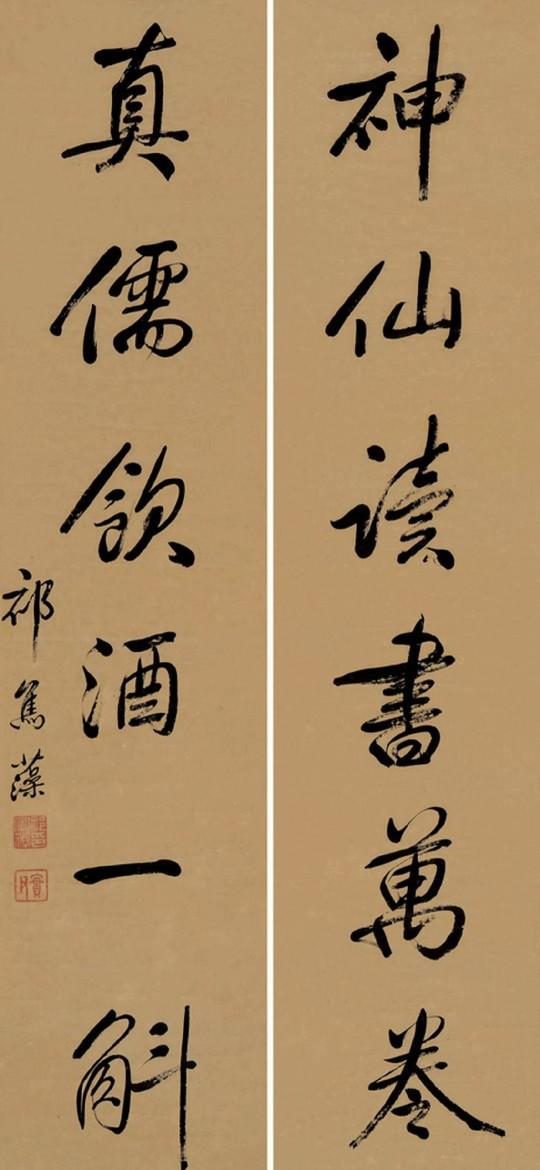 神仙读書萬卷
真儒飲酒一斛
祁寯藻